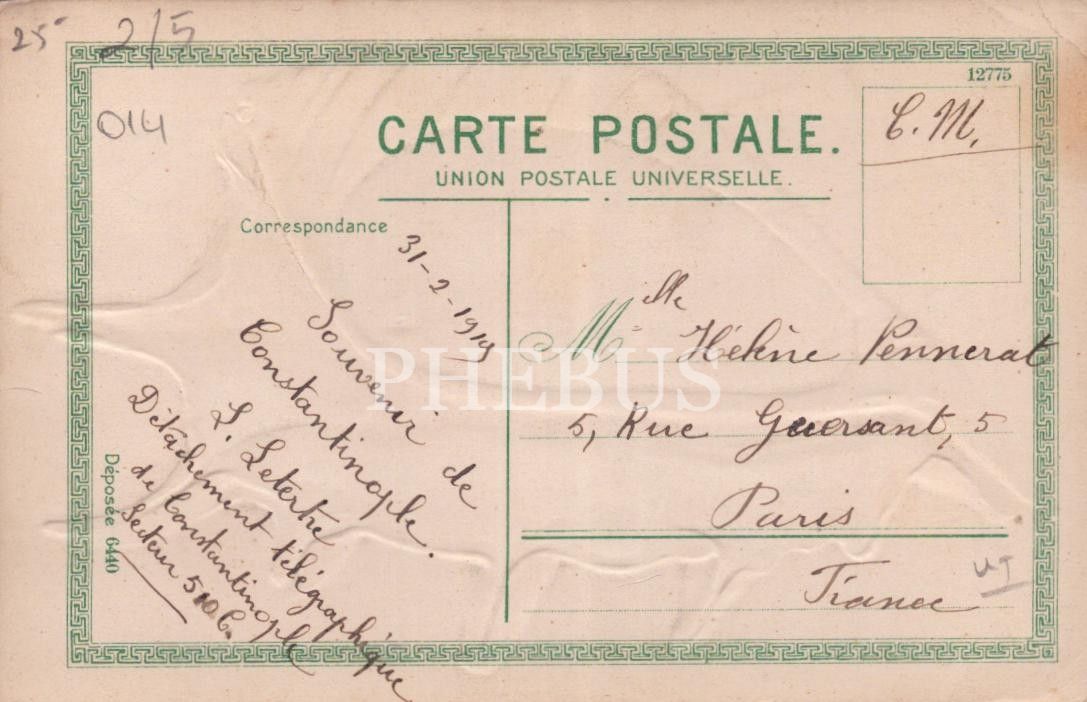 25
2/5
014
12775
C. M.
CARTE POSTALE.
UNION POSTALE UNIVERSELLE.
Correspondance
31-2-1919
Souvenir de
Constantinople.
L. Letertre
Détachement télégraphique
de Constantinople
Secteur 510 C.
Déposée 6440
Mlle Hélène Pennerat
5, Rue Guersant, 5
Paris
France
PHEBUS